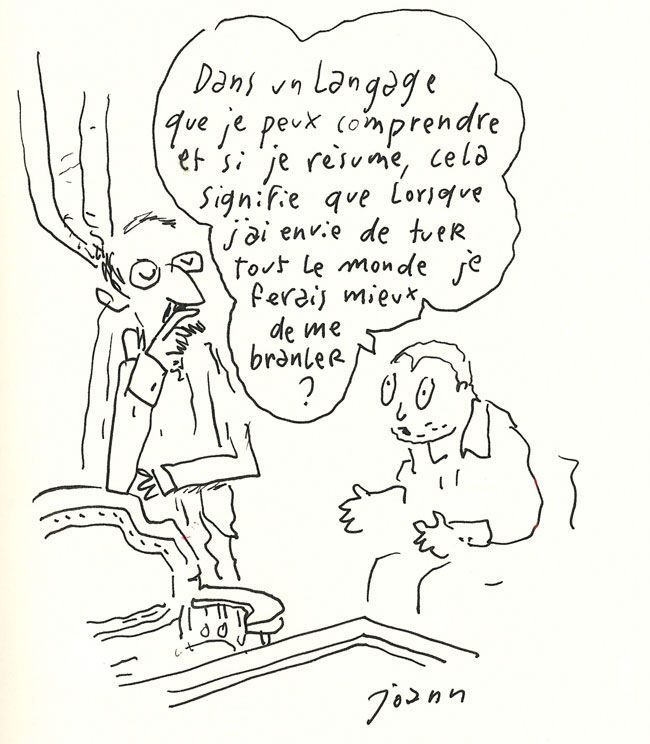 Dans un Langage
que je peux comprendre
et si je résume, cela
signifie que Lorsque
j'ai envie de tueR
tout Le monde je
ferais mieux
de me
branleR
?
joann